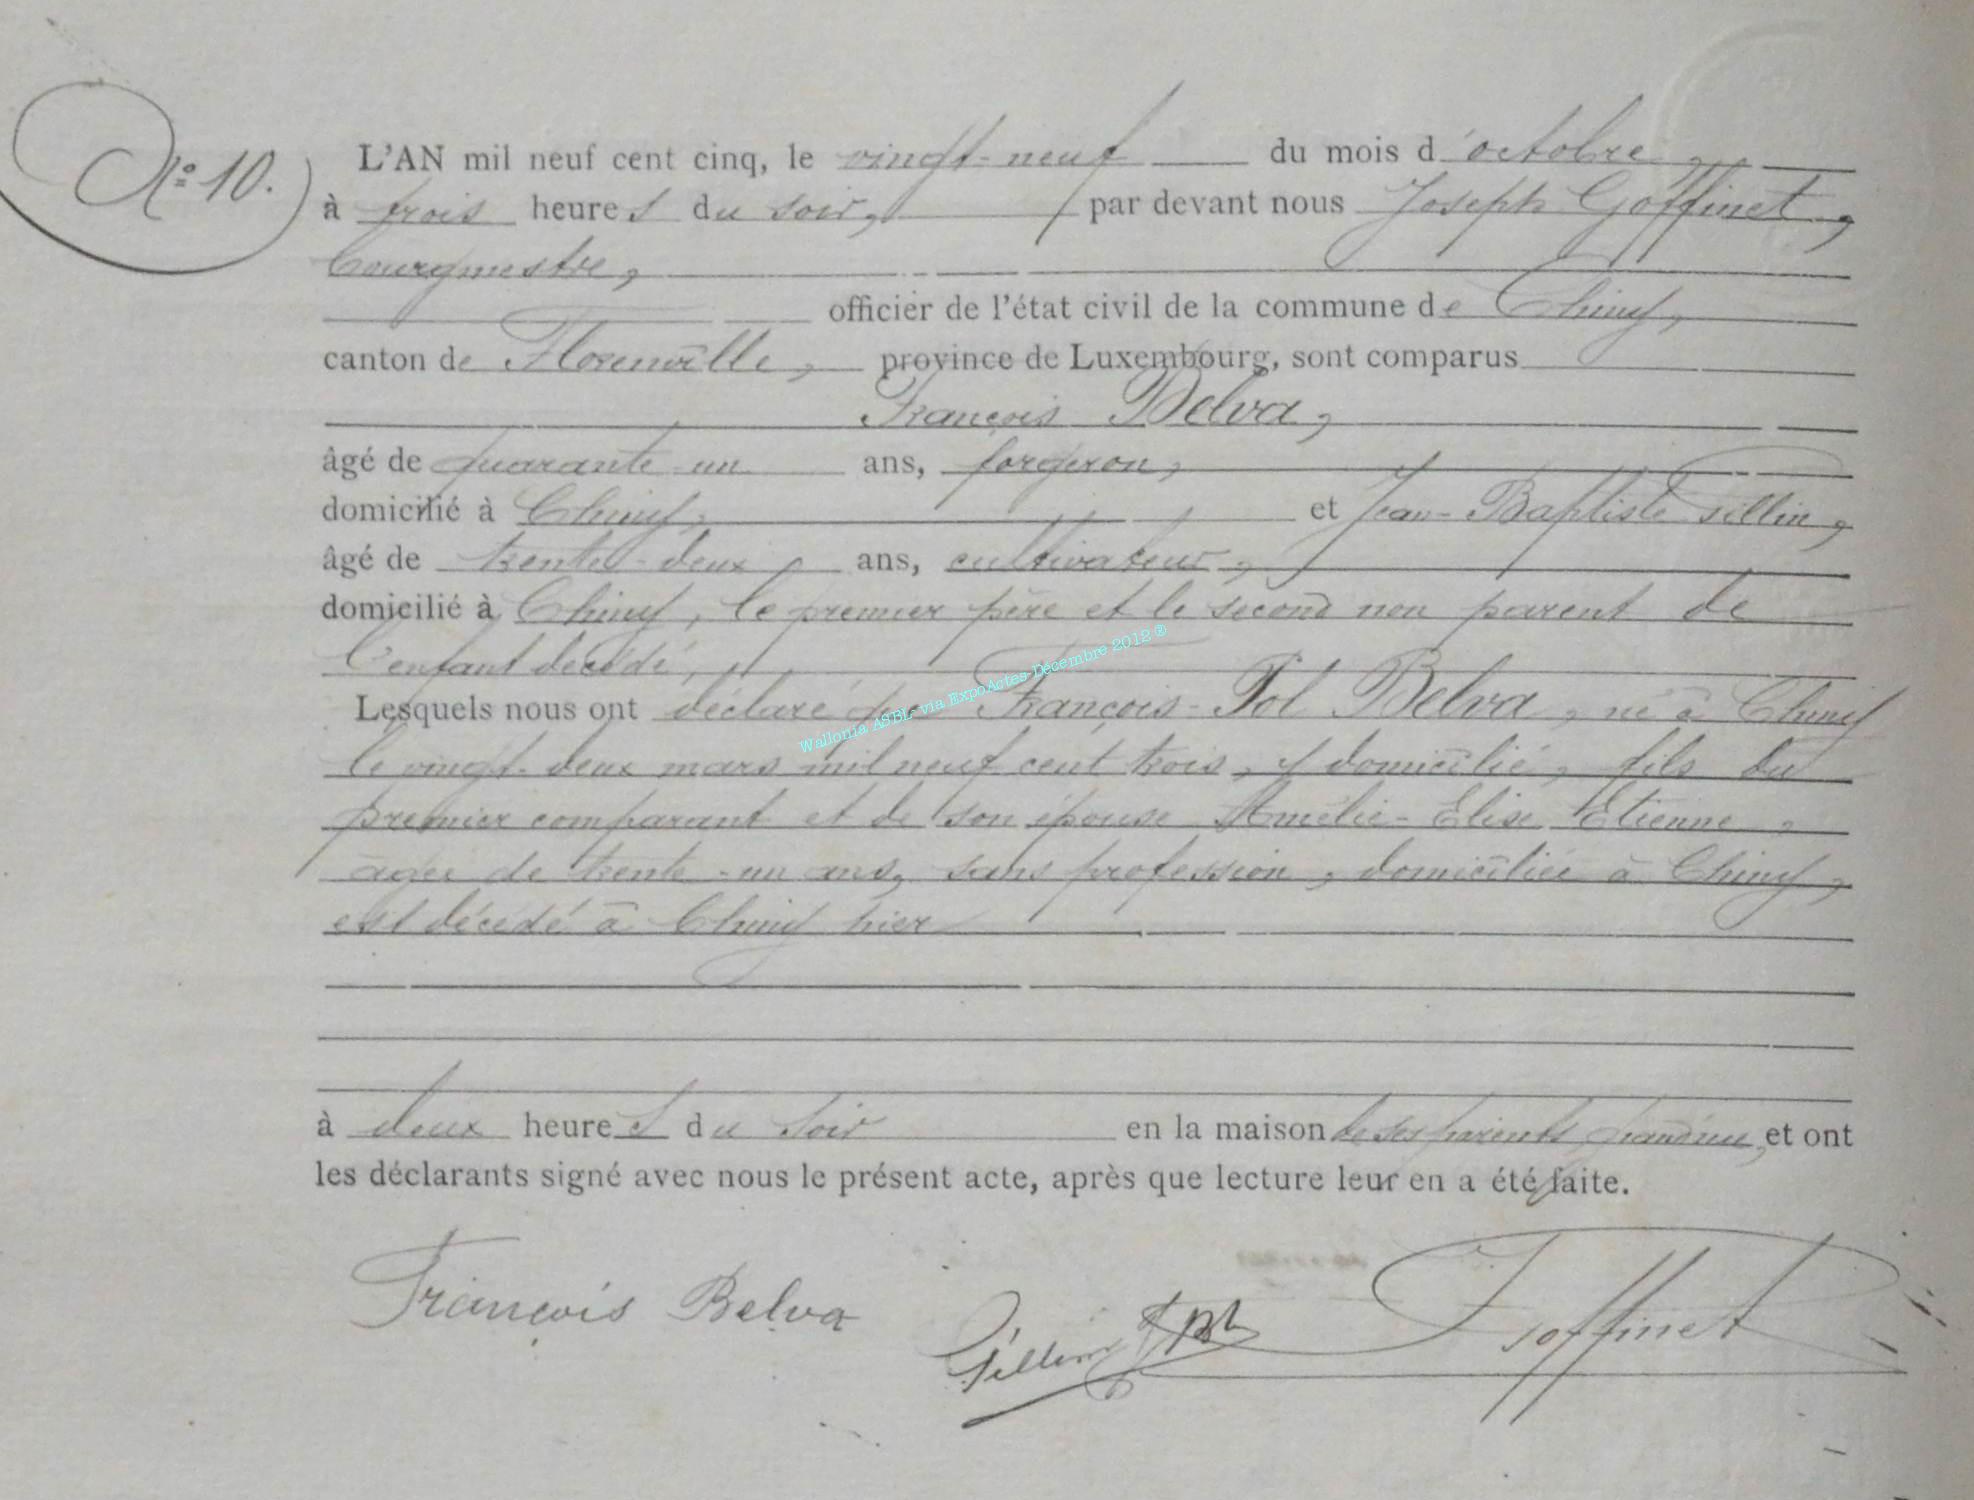 N° 10.
L'AN mil neuf cent cinq, le vingt-neuf du mois d'octobre,
à trois heures du soir, par devant nous Joseph Goffinet,
bourgmestre,
officier de l'état civil de la commune de Chiny,
canton de Florenville, province de Luxembourg, sont comparus
François Belva,
âgé de quarante-un ans, forgeron,
domicilié à Chiny, et Jean-Baptiste Sillin,
âgé de trente-deux ans, cultivateur,
domicilié à Chiny, le premier père et le second non parent de
l'enfant décédé,
Lesquels nous ont déclaré que François-Pol Belva, né à Chiny
le vingt-deux mars mil neuf cent trois, y domicilié, fils du
premier comparant et de son épouse Amélie-Elise Etienne,
âgée de trente-un ans, sans profession, domiciliée à Chiny,
est décédé à Chiny hier
à deux heures du soir en la maison de ses parents, et ont
les déclarants signé avec nous le présent acte, après que lecture leur en a été faite.
François Belva Sillin JBt Goffinet
Wallonia ASBL- via ExpoActes-Décembre 2012 ®